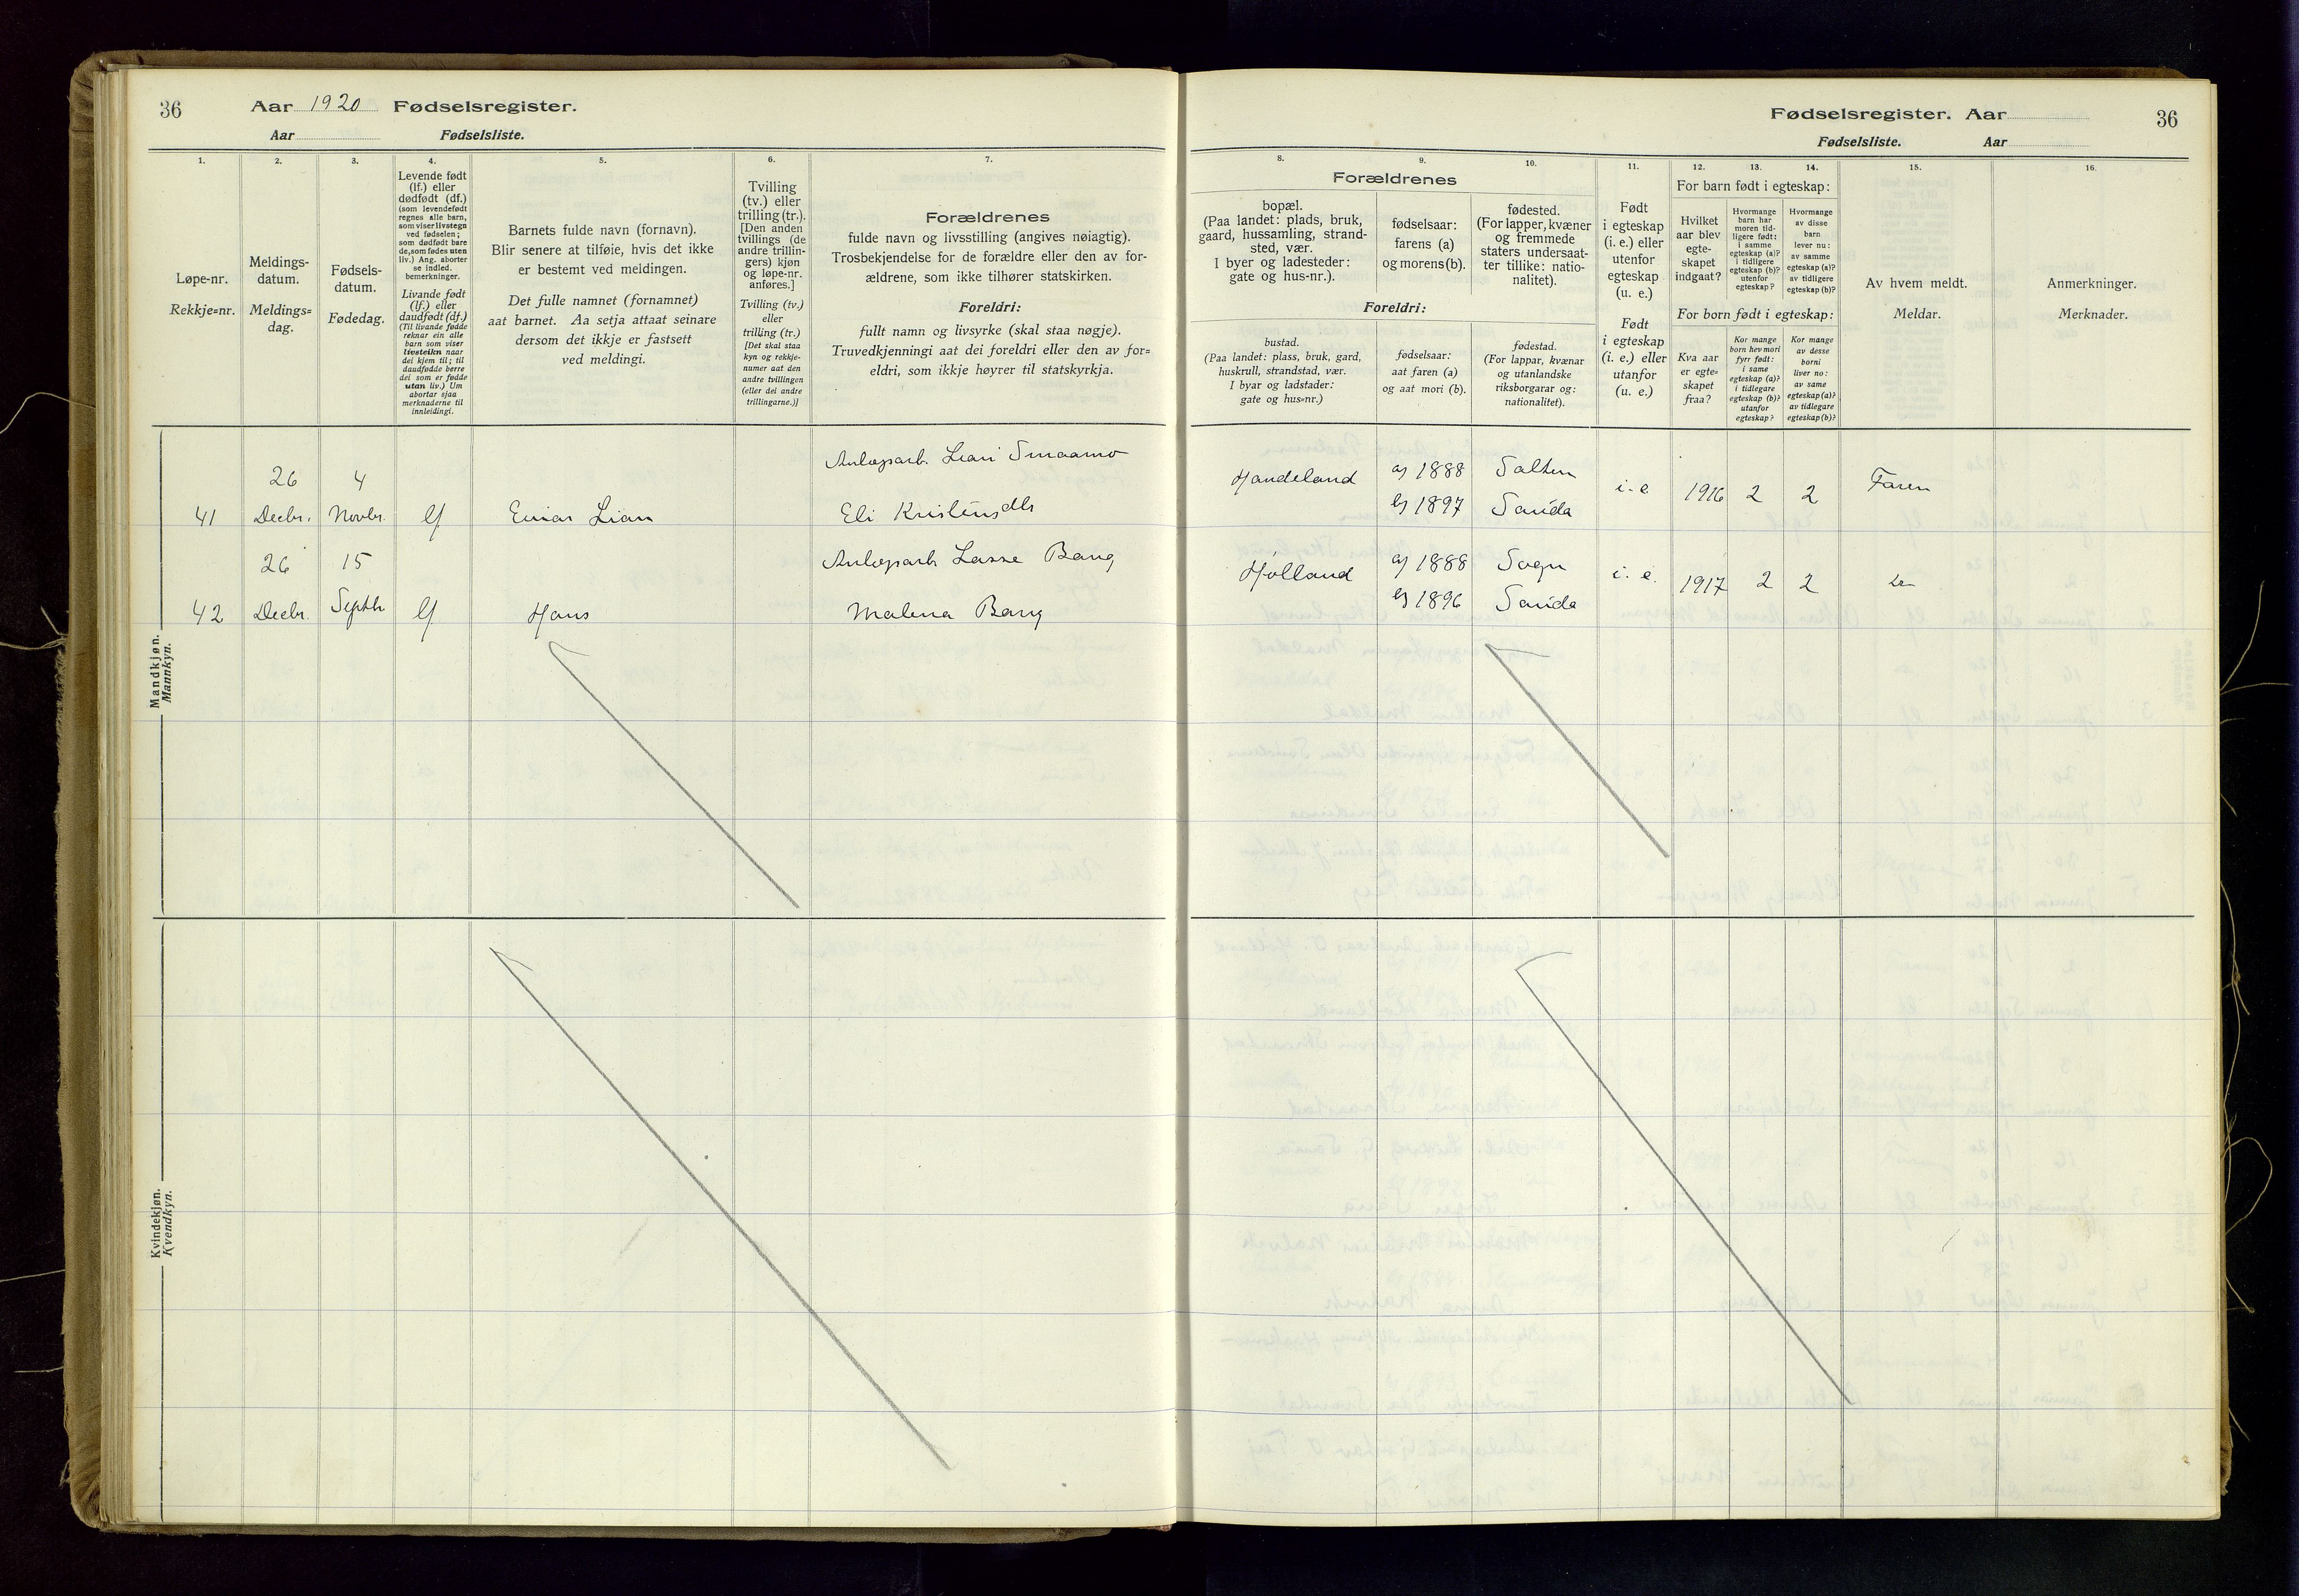 36 Aar 1920 Fødselsregister.
Aar Fødselsliste.
Fødselsregister. Aar 36
Fødselsliste. Aar
1. 2. 3. 4. 5. 6. 7.
Løpe-nr.
Rekkje=nr.
Meldings-
datum.
Meldings=
dag.
Fødsels-
datum.
Fødedag.
Levende født
(lf.) eller
dødfødt (df.)
(som levendefødt
regnes alle barn,
som viser livstegn
ved fødselen;
som dødfødt bare
de, som fødes uten
liv.) Ang. aborter
se indled.
bemerkninger.
Livande født
(lf.) eller
daudfødt (df.)
(Til livande fødde
reknar ein alle
barn som viser
livsteikn naar
dei kjem til; til
daudfødde berre
dei som er fødde
utan liv.) Um
abortar sjaa
merknaderne til
innleidingi.
Barnets fulde navn (fornavn).
Blir senere at tilføie, hvis det ikke
er bestemt ved meldingen.
Det fulle namnet (fornamnet)
aat barnet. Aa setja attaat seinare
dersom det ikkje er fastsett
ved meldingi.
Tvilling
(tv.) eller
trilling (tr.).
[Den anden
tvillings (de
andre trillin-
gers) kjøn
og løpe-nr.
anføres.]
Tvilling (tv.)
eller
trilling (tr.)
[Det skal staa
kyn og rekkje-
numer aat den
andre tvillingen
(eller dei andre
trillingarne.)]
Forældrenes
fulde navn og livsstilling (angives nøiagtig).
Trosbekjendelse for de forældre eller den av for-
ældrene, som ikke tilhører statskirken.
Foreldri:
fullt namn og livsyrke (skal staa nøgje).
Truvedkjenningi aat dei foreldri eller den av for=
eldri, som ikkje høyrer til statskyrkja.
8. 9. 10. 11. 12. 13. 14. 15. 16.
Forældrenes
bopæl.
(Paa landet: plads, bruk,
gaard, hussamling, strand-
sted, vær.
I byer og ladesteder:
gate og hus-nr.).
fødselsaar:
farens (a)
og morens (b).
fødested.
(For lapper, kvæner
og fremmede
staters undersaat-
ter tillike: natio-
nalitet).
Foreldri:
bustad.
(Paa landet: plass, bruk, gard,
huskrull, strandstad, vær.
I byar og ladstader:
gate og hus=nr.)
fødselsaar:
aat faren (a)
og aat mori (b).
fødestad.
(For lappar, kvænar
og utanlandske
riksborgarar og:
nationalitet).
Født
i egteskap
(i. e.) eller
utenfor
egteskap
(u. e.)
Født
i egteskap
(i. e.) eller
utanfor
(u. e.)
For barn født i egteskap:
Hvilket
aar blev
egte-
skapet
indgaat?
Hvormange
barn har
moren tid-
ligere født:
i samme
egteskap (a)?
i tidligere
egteskap (b)?
utenfor
egteskap?
Hvormange
av disse
barn
lever nu:
av samme
egteskap (a)?
av tidligere
egteskap (b)?
For born født i egteskap:
Kva aar
er egte=
skapet
fraa?
Kor mange
born hev mori
fyrr født:
i same
egteskap (a)?
i tidlegare
egteskap (b)?
utanfor
egteskap?
Kor mange
av desse
borni
liver no:
av same
egteskap (a)?
av tidlegare
egteskap (b)?
Av hvem meldt.
Meldar.
Anmerkninger.
Merknader.
Mandkjøn.
Mannkyn.
26 4 Anlægsarb. Smaamo Handeland a) 1888 Salten i. e 1916 2 2 Faren
41 Decbr. Novbr. lf Einar Eli b) 1897 Sauda
26 15 Anlægsarb. Lasse Bang Hølland a) 1888 Sogn i. e. 1917 2 2
42 Decbr. Septbr. lf Hans Malena Bang b) 1896 Sauda
Kvindekjøn.
Kvendkyn.